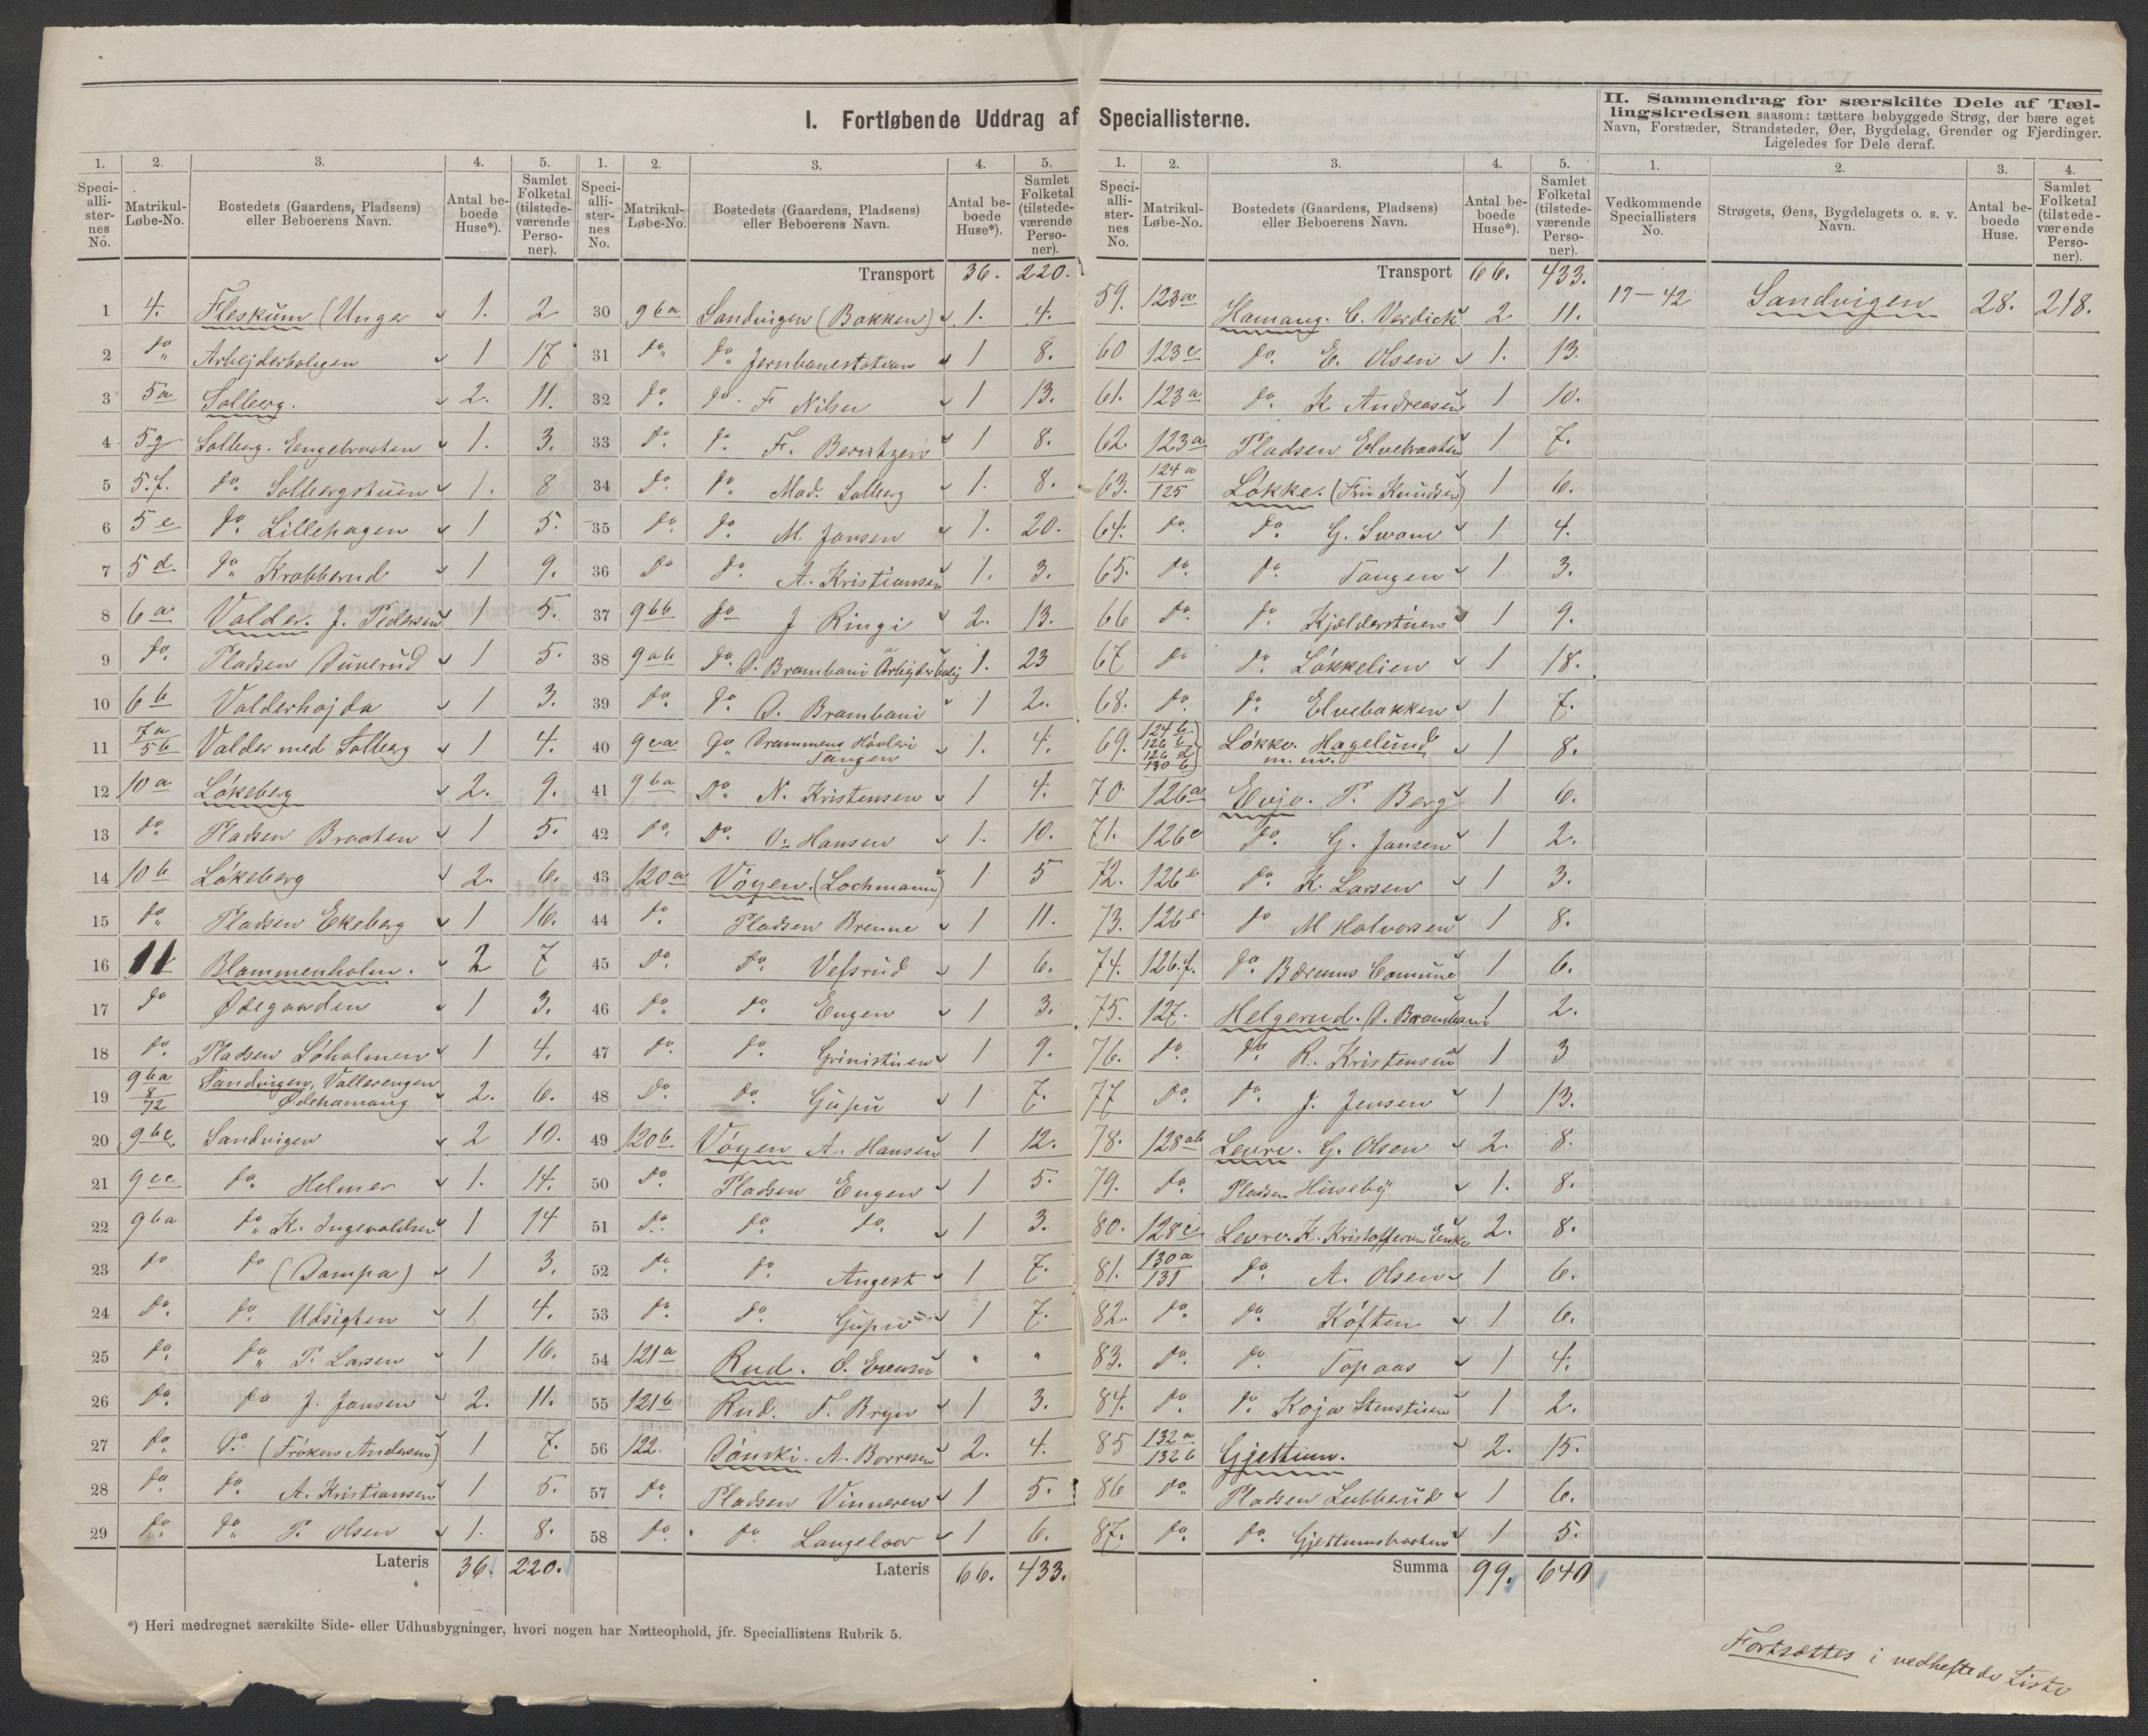 I. Fortløbende Uddrag af Speciallisterne.
II. Sammendrag for særskilte Dele af Tæl-
lingskredsen saasom: tættere bebyggede Strøg, der bære eget
Navn, Forstæder, Strandsteder, Øer, Bygdelag, Grender og Fjerdinger.
Ligeledes for Dele deraf.
1. 2. 3. 4. 5.
Speci-
alli-
ster-
nes
No.
Matrikul-
Løbe-No.
Bostedets (Gaardens, Pladsens)
eller Beboerens Navn.
Antal be-
boede
Huse*).
Samlet
Folketal
(tilstede-
værende
Perso-
ner).
1 4. Fleskum (Unger 1. 2
2 do Arbejderboligen 1 17
3 5a Solberg. 2. 11.
4 5g Solberg. Engebraaten 1. 3.
5 5.f. do. Solbergstuen 1. 8
6 5e do. Lillehagen 1 5.
7 5d do Krabberud 1 9.
8 6a Valder. J. Pedersen 1 5.
9 do. Pladsen Dunerud 1 5.
10 6b Valderhøjda 1 3.
11 7a/5b Valder med Solberg 1 4.
12 10a Løkeberg 2. 9.
13 do Pladsen Braaten 1 5.
14 10b Løkeberg 2. 6.
15 do. Pladsen Ekeberg 1 16.
16 11 Blommenholm. 2 7
17 do Ødegaarden 1 3.
18 do. Pladsen Løholmen 1 4.
19 9ba 8/72 Sandvigen, Vallerengen
Ødehamang 2. 6.
20 9bc Sandvigen 2 10.
21 9cc do. Helmer 1. 14.
22 9ba do. K. Ingevaldsen 1 14
23 do do (Dampa) 1 3.
24 do. do. Udsigten 1 4.
25 do. do. P. Larsen 1 16.
26 do. do J. Jansen 2. 11.
27 do. do. (Frøken Andersen) 1 7.
28 do. do. A. Kristiansen 1 5.
29 do. do. P. Olsen 1. 8.
Lateris 36. 220.
1. 2. 3. 4. 5.
Speci-
alli-
ster-
nes
No.
Matrikul-
Løbe-No.
Bostedets (Gaardens, Pladsens)
eller Beboerens Navn.
Antal be-
boede
Huse*).
Samlet
Folketal
(tilstede-
værende
Perso-
ner).
Transport 36. 220.
30 9ba Sandvigen (Bakken) 1. 4.
31 do. do. Jernbanestation 1 8.
32 do. do. F Nilsen 1 13.
33 do. do. F. Berntzen 1 8.
34 do. do. Mad. Solberg 1. 8.
35 do. do. M. Jansen 1. 20.
36 do do. A. Kristiansen 1. 3.
37 9bb do J Ringi 2. 13.
38 9ab do. O. Brambani Arbejderbolig 1. 23
39 do. do. O. Brambani 1 2.
40 9ca do Drammens Høvleri
Tangen 1. 4.
41 9ba do. N. Kristensen 1 4.
42 do. do. O. Hansen 1. 10.
43 120a Vøyen. (Lochmann) 1 5
44 do. Pladsen Brenne 1 11.
45 do. do. Vefsrud 1 6.
46 do. do. Engen 1 3.
47 do. do. Grinistuen 1 9.
48 do. do. Gupu 1 7.
49 120b. Vøyen A. Hansen 1 12.
50 do. Pladsen Engen 1 5.
51 do. do. do. 1 3.
52 do. do. Angest 1 7.
53 do. do. Gupu 1 7.
54 121a Rud. " "
55 121b Rud. T. Bryn 1 3.
56 122. Dønski. A. Borresen 2. 4.
57 do. Pladsen Vinneren 1 5.
58 do. do. Langeloor 1 6.
Lateris 66. 433.
1. 2. 3. 4. 5.
Speci-
alli-
ster-
nes
No.
Matrikul-
Løbe-No.
Bostedets (Gaardens, Pladsens)
eller Beboerens Navn.
Antal be-
boede
Huse*).
Samlet
Folketal
(tilstede-
værende
Perso-
ner).
Transport 66. 433.
59. 123a Hamang. C. Verdick 2 11.
60 123c do. E. Olsen 1. 13.
61. 123a do. K Andreasen 1 10.
62. 123a Pladsen Elvebraaten 1 7.
63. 124a/125 Løkke. (Fru Knudsen) 1 6.
64. do. do. G. Swane 1 4.
65. do. do. Tangen 1 3.
66 do. do. Kjelderstuen 1 9.
67 do do. Løkkelien 1 18.
68. do. do. Elvebakken 1 7.
69. 124b. 126b 126d 130b Løkke. Hagelund
m. m. 1 8.
70. 126a Evje. P. Berg 1 6.
71. 126c do. G. Jansen 1 2.
72. 126e do. K. Larsen 1 3.
73. 126e do M Halvorsen 1 8.
74. 126.f. do. Bærums Comune 1 6.
75. 127. Helgerud. O. Brambani 1 2.
76. do. do. R. Kristensen 1 3
77 do. do. J. Jensen 1 13.
78. 128ab Levre. G. Olsen 2. 8.
79. do. Pladsen Huseby 1. 8.
80. 128c Levre. K. Kristoffersen Enke 2. 8.
81. 130a/131 do. A. Olsen 1 6.
82. do. do. Køften 1 6.
83. do. do. Topaas 1 4.
84. do. do. Koja Stenstuen 1 2.
85 132a/132b Gjettum. 2. 15.
86 do. Pladsen Lubberud 1 6.
87. do. do. Gjettumsbraaten 1 5.
Summa 99. 640
1. 2. 3. 4.
Vedkommende
Speciallisters
No.
Strøgets, Øens, Bygdelagets o. s. v.
Navn.
Antal be-
boede
Huse.
Samlet
Folketal
(tilstede-
værende
Perso-
ner).
19-42 Sandvigen 28. 218.
*) Heri medregnet særskilte Side- eller Udhusbygninger, hvori nogen har Natteophold, jfr. Speciallistens Rubrik 5.
Fortsættes i vedheftede Liste